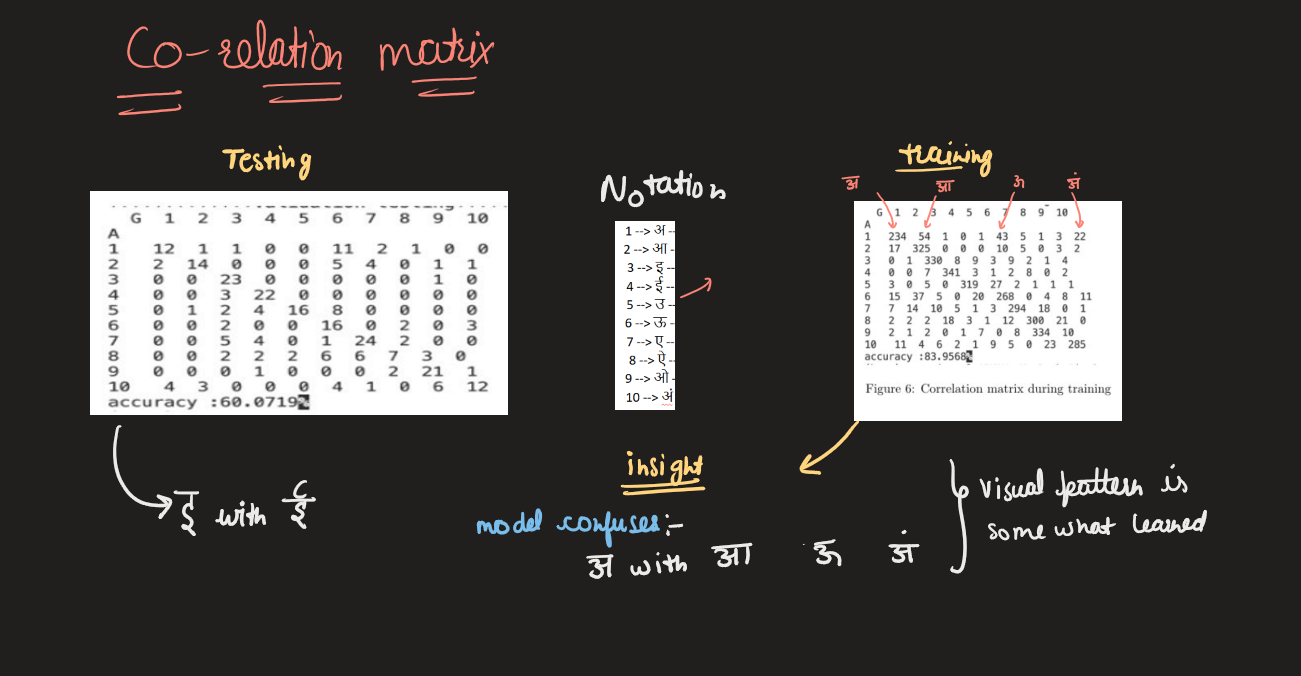 Co-relation matrix
Testing
G 1 2 3 4 5 6 7 8 9 10
A
1 12 1 1 0 0 11 2 1 0 0
2 2 14 0 0 0 5 4 0 1 1
3 0 0 23 0 0 0 0 0 1 0
4 0 0 3 22 0 0 0 0 0 0
5 0 1 2 4 16 8 0 0 0 0
6 0 0 2 0 0 16 0 2 0 3
7 0 0 5 4 0 1 24 2 0 0
8 0 0 2 2 2 6 6 7 3 0
9 0 0 0 1 0 0 0 2 21 1
10 4 3 0 0 0 4 1 0 6 12
accuracy :60.0719%
Notation
1 --> अ --
2 --> आ -
3 --> इ --
4 --> ई --
5 --> उ --
6 --> ऊ -
7 --> ए --
8 --> ऐ --
9 --> ओ -
10 --> अं
training
अ आ ऊ अं
G 1 2 3 4 5 6 7 8 9 10
A
1 234 54 1 0 1 43 5 1 3 22
2 17 325 0 0 0 10 5 0 3 2
3 0 1 330 8 9 3 9 2 1 4
4 0 0 7 341 3 1 2 8 0 2
5 3 0 5 0 319 27 2 1 1 1
6 15 37 5 0 20 268 0 4 8 11
7 7 14 10 5 1 3 294 18 0 1
8 2 2 2 18 3 1 12 300 21 0
9 2 1 2 0 1 7 0 8 334 10
10 11 4 6 2 1 9 5 0 23 285
accuracy :83.9568%
Figure 6: Correlation matrix during training
इ with ई
insight
model confuses:-
अ with आ ऊ अं
visual pattern is
some what learned